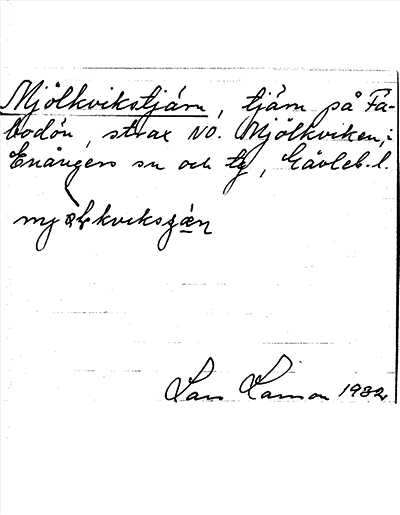 Mjölkvikstjärn, tjärn på Fä-
bodön, strax NO. Mjölkviken, i
Enångers sn och tg, Gävleb. l.
Lars Larsson 1982